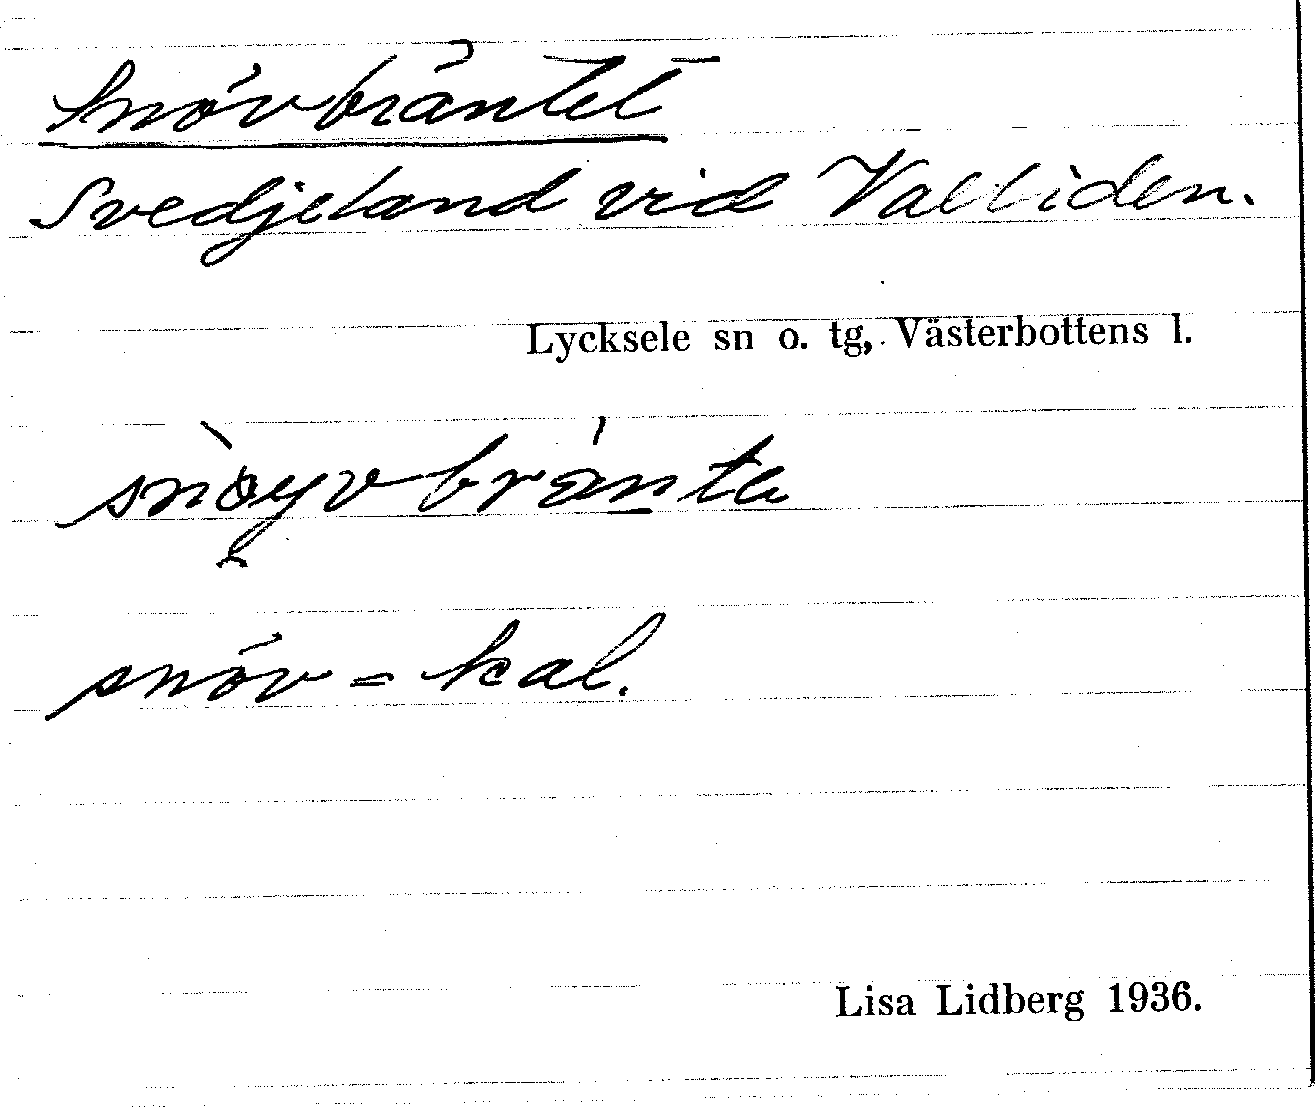 Snövbräntet
Svedjeland vid Valliden.
Lycksele sn o. tg, Västerbottens l.
snöyvbränta
snöv = kal.
Lisa Lidberg 1936.